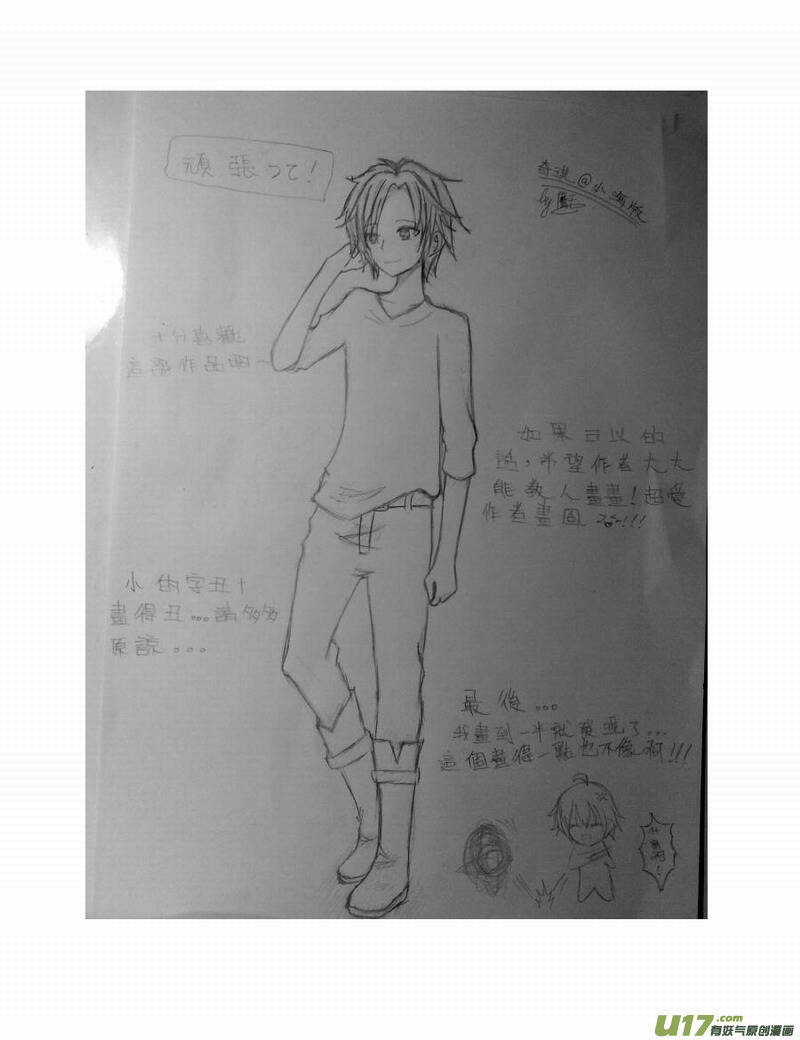 頑張って！
奇說@小鳴版
by
十分喜歡
這部作品啊~
如果可以的
話，希望作者大大
能教人畫畫！超愛
作者畫圖
小的字丑+
畫得丑...請多多
原諒...
最後...
我畫到一半就發現了...
這個畫得一點也不像啊!!!
什麼啊！
U17.com
有妖气原创漫画